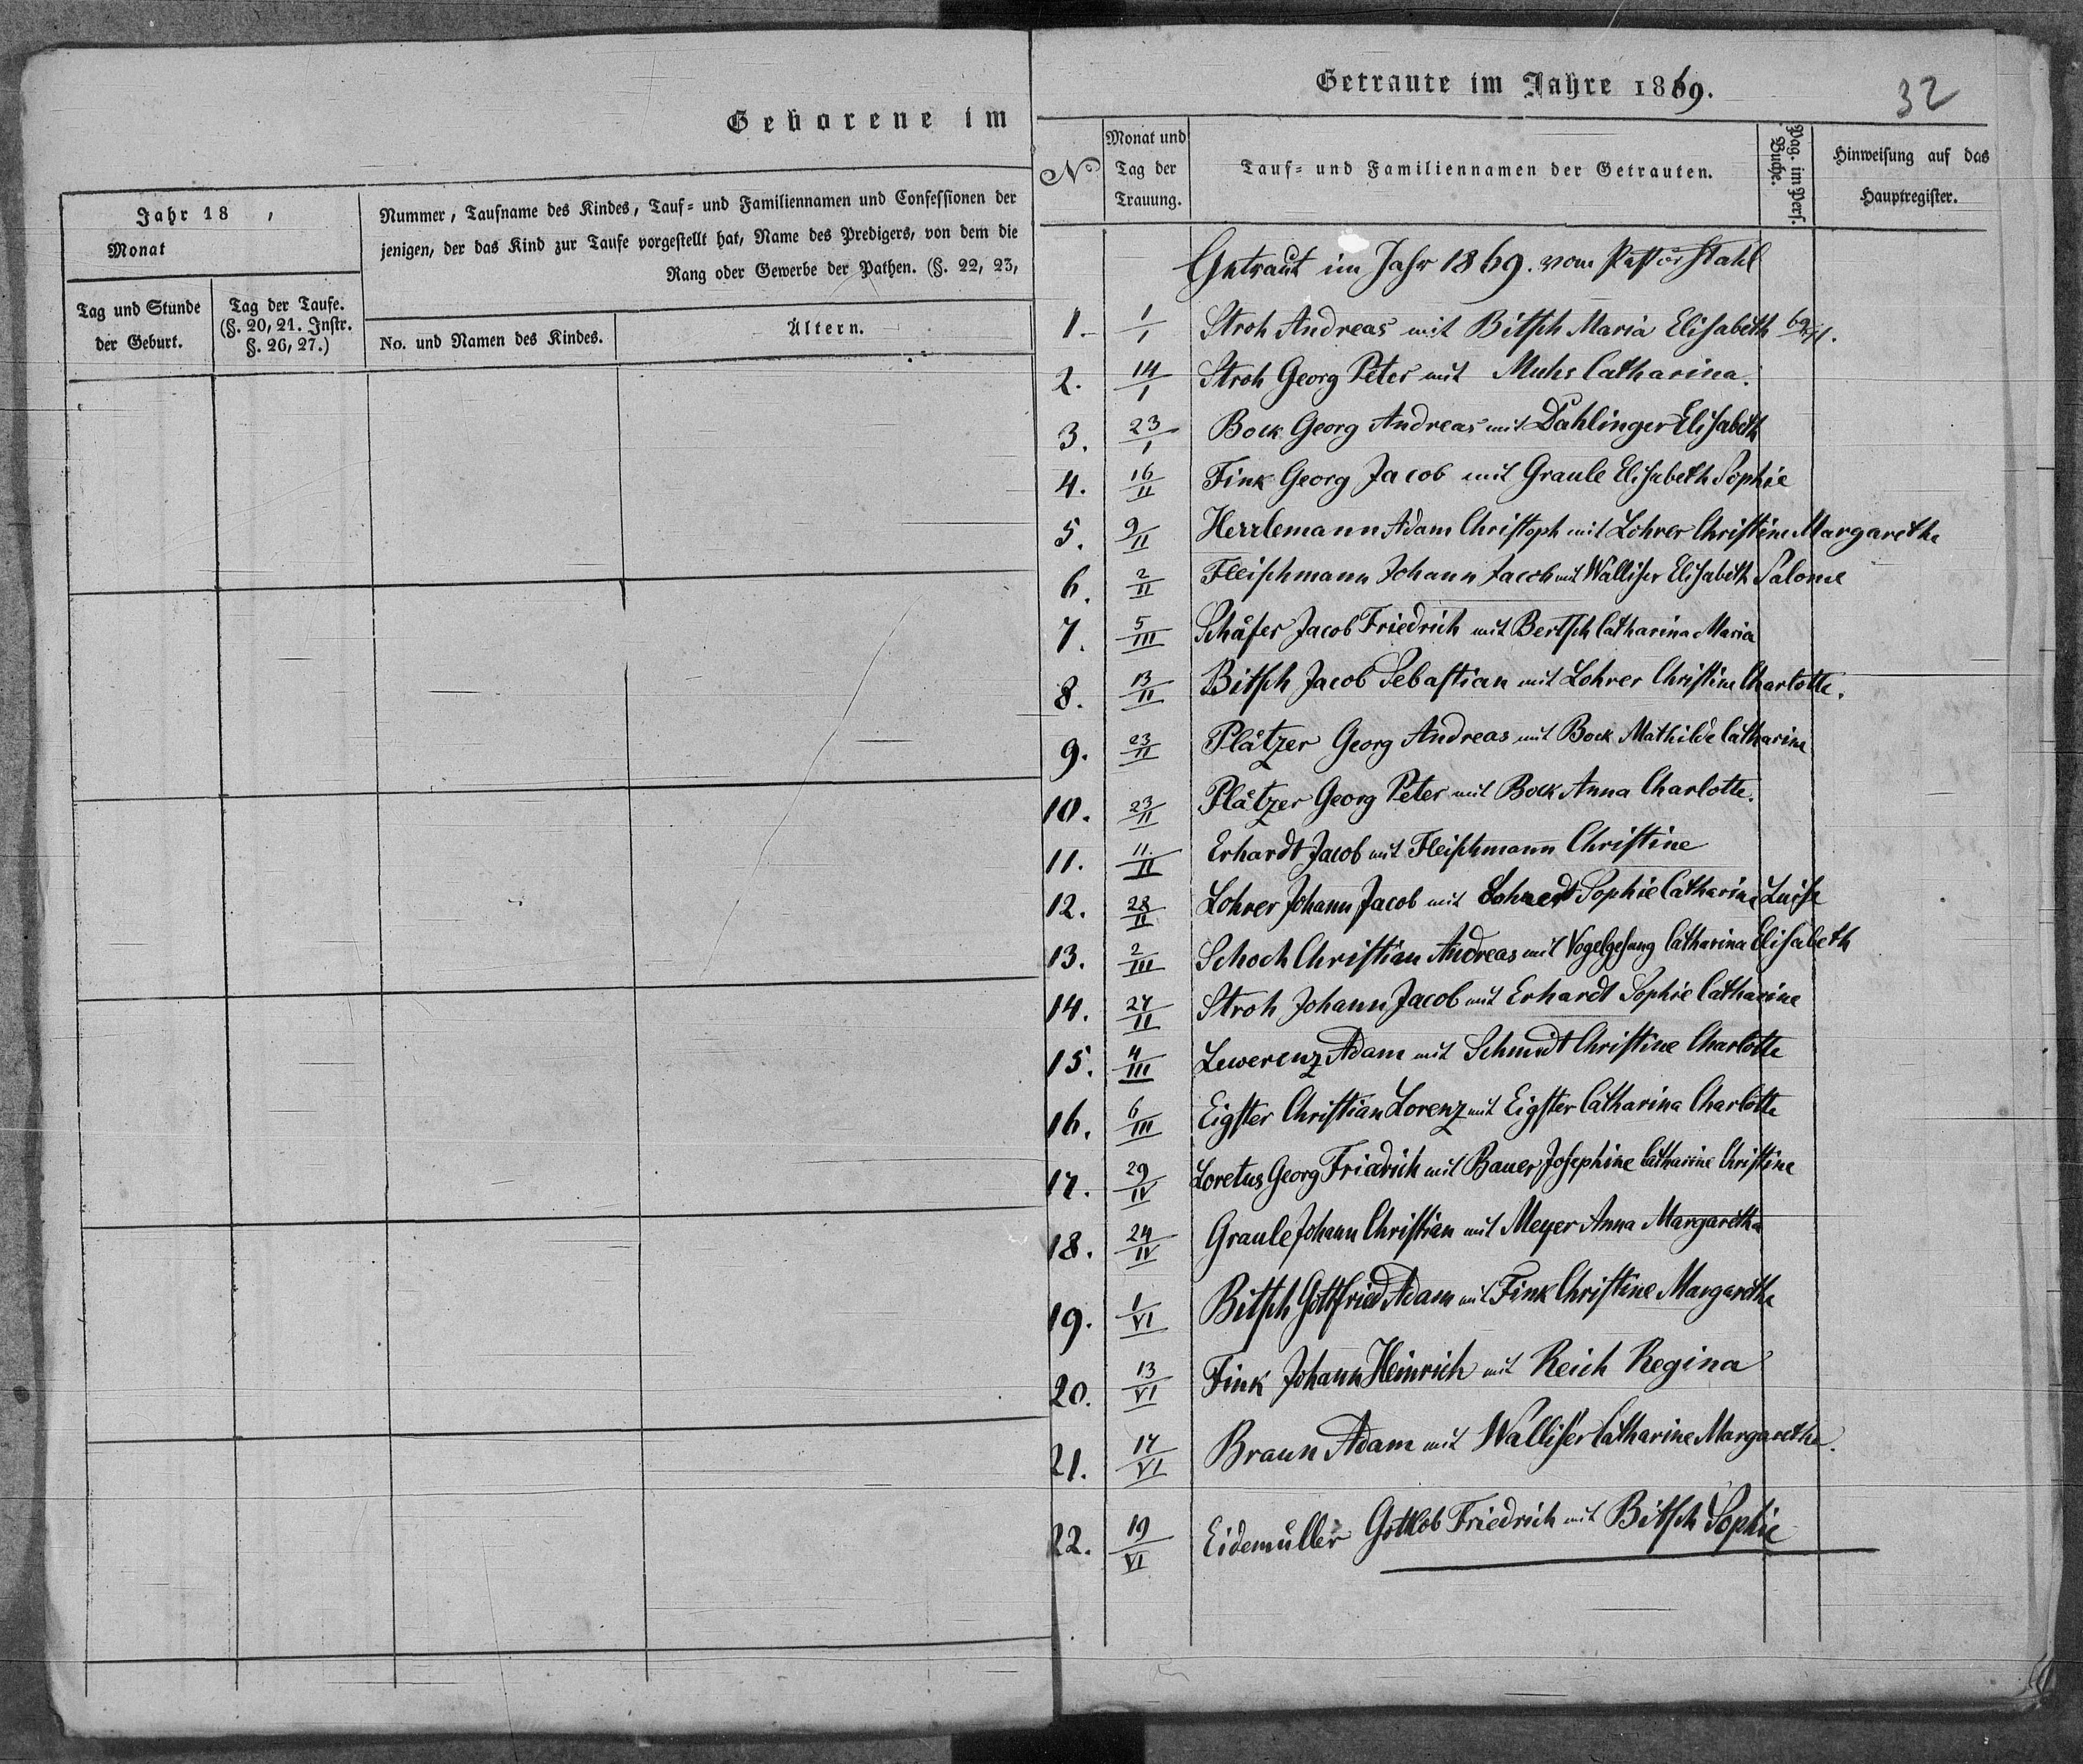 Geborene im
Jahr 18 ,
Monat
Nummer, Taufname des Kindes, Tauf- und Familiennamen und Confessionen der
jenigen, der das Kind zur Taufe vorgestellt hat, Name des Predigers, von dem die
Rang oder Gewerbe der Pathen. (§. 22, 23,
Tag und Stunde
der Geburt.
Tag der Taufe.
(§. 20, 21. Instr.
§. 26, 27.)
No. und Namen des Kindes.
Ältern.
Getraute im Jahre 1869.
32
No
Monat und
Tag der
Trauung.
Tauf- und Familiennamen der Getrauten.
Pag. im Pers.
Buche.
Hinweisung auf das
Hauptregister.
Getraut im Jahr 1869. vom Pastor Stahl
1. 1/I Stroh Andreas mit Bitsch Maria Elisabeth
2. 14/I Stroh Georg Peter mit Muhs Catharina.
3. 23/I Bock Georg Andreas mit Dahlinger Elisabeth
4. 16/II Fink Georg Jacob mit Graule Elisabeth Sophie
5. 9/II Herrlemann Adam Christoph mit Lohrer Christine Margarethe
6. 2/II Fleischmann Johann Jacob mit Walliser Elisabeth Salome
7. 5/III Schäfer Jacob Friedrich mit Bertsch Catharina Maria
8. 13/II Bitsch Jacob Sebastian mit Lohrer Christine Charlotte.
9. 23/II Plätzer Georg Andreas mit Bock Mathilde Catharine
10. 23/II Plätzer Georg Peter mit Bock Anna Charlotte.
11. 11./II Erhardt Jacob mit Fleischmann Christine
12. 28/II Lohrer Johann Jacob mit Sophie Catharine Luise
13. 2/III Schoch Christian Andreas mit Vogelgesang Catharina Elisabeth
14. 27/II Stroh Johann Jacob mit Erhardt Sophie Catharine
15. 4/III Lewerenz Adam mit Schmidt Christine Charlotte
16. 6/III Eigster Christian Lorenz mit Eigster Catharina Charlotte
17. 29/IV Loretus Georg Friedrich mit Bauer Josephine Catharine Christine
18. 24/IV Graule Johann Christian mit Meyer Anna Margaretha
19. 1/VI Bitsch Gottfried Adam mit Fink Christine Margaretha
20. 13/VI Fink Johann Heinrich mit Reich Regina
21. 17/VI Braun Adam mit Walliser Catharine Margarethe.
22. 19/VI Eidemüller Gottlob Friedrich mit Bitsch Sophie